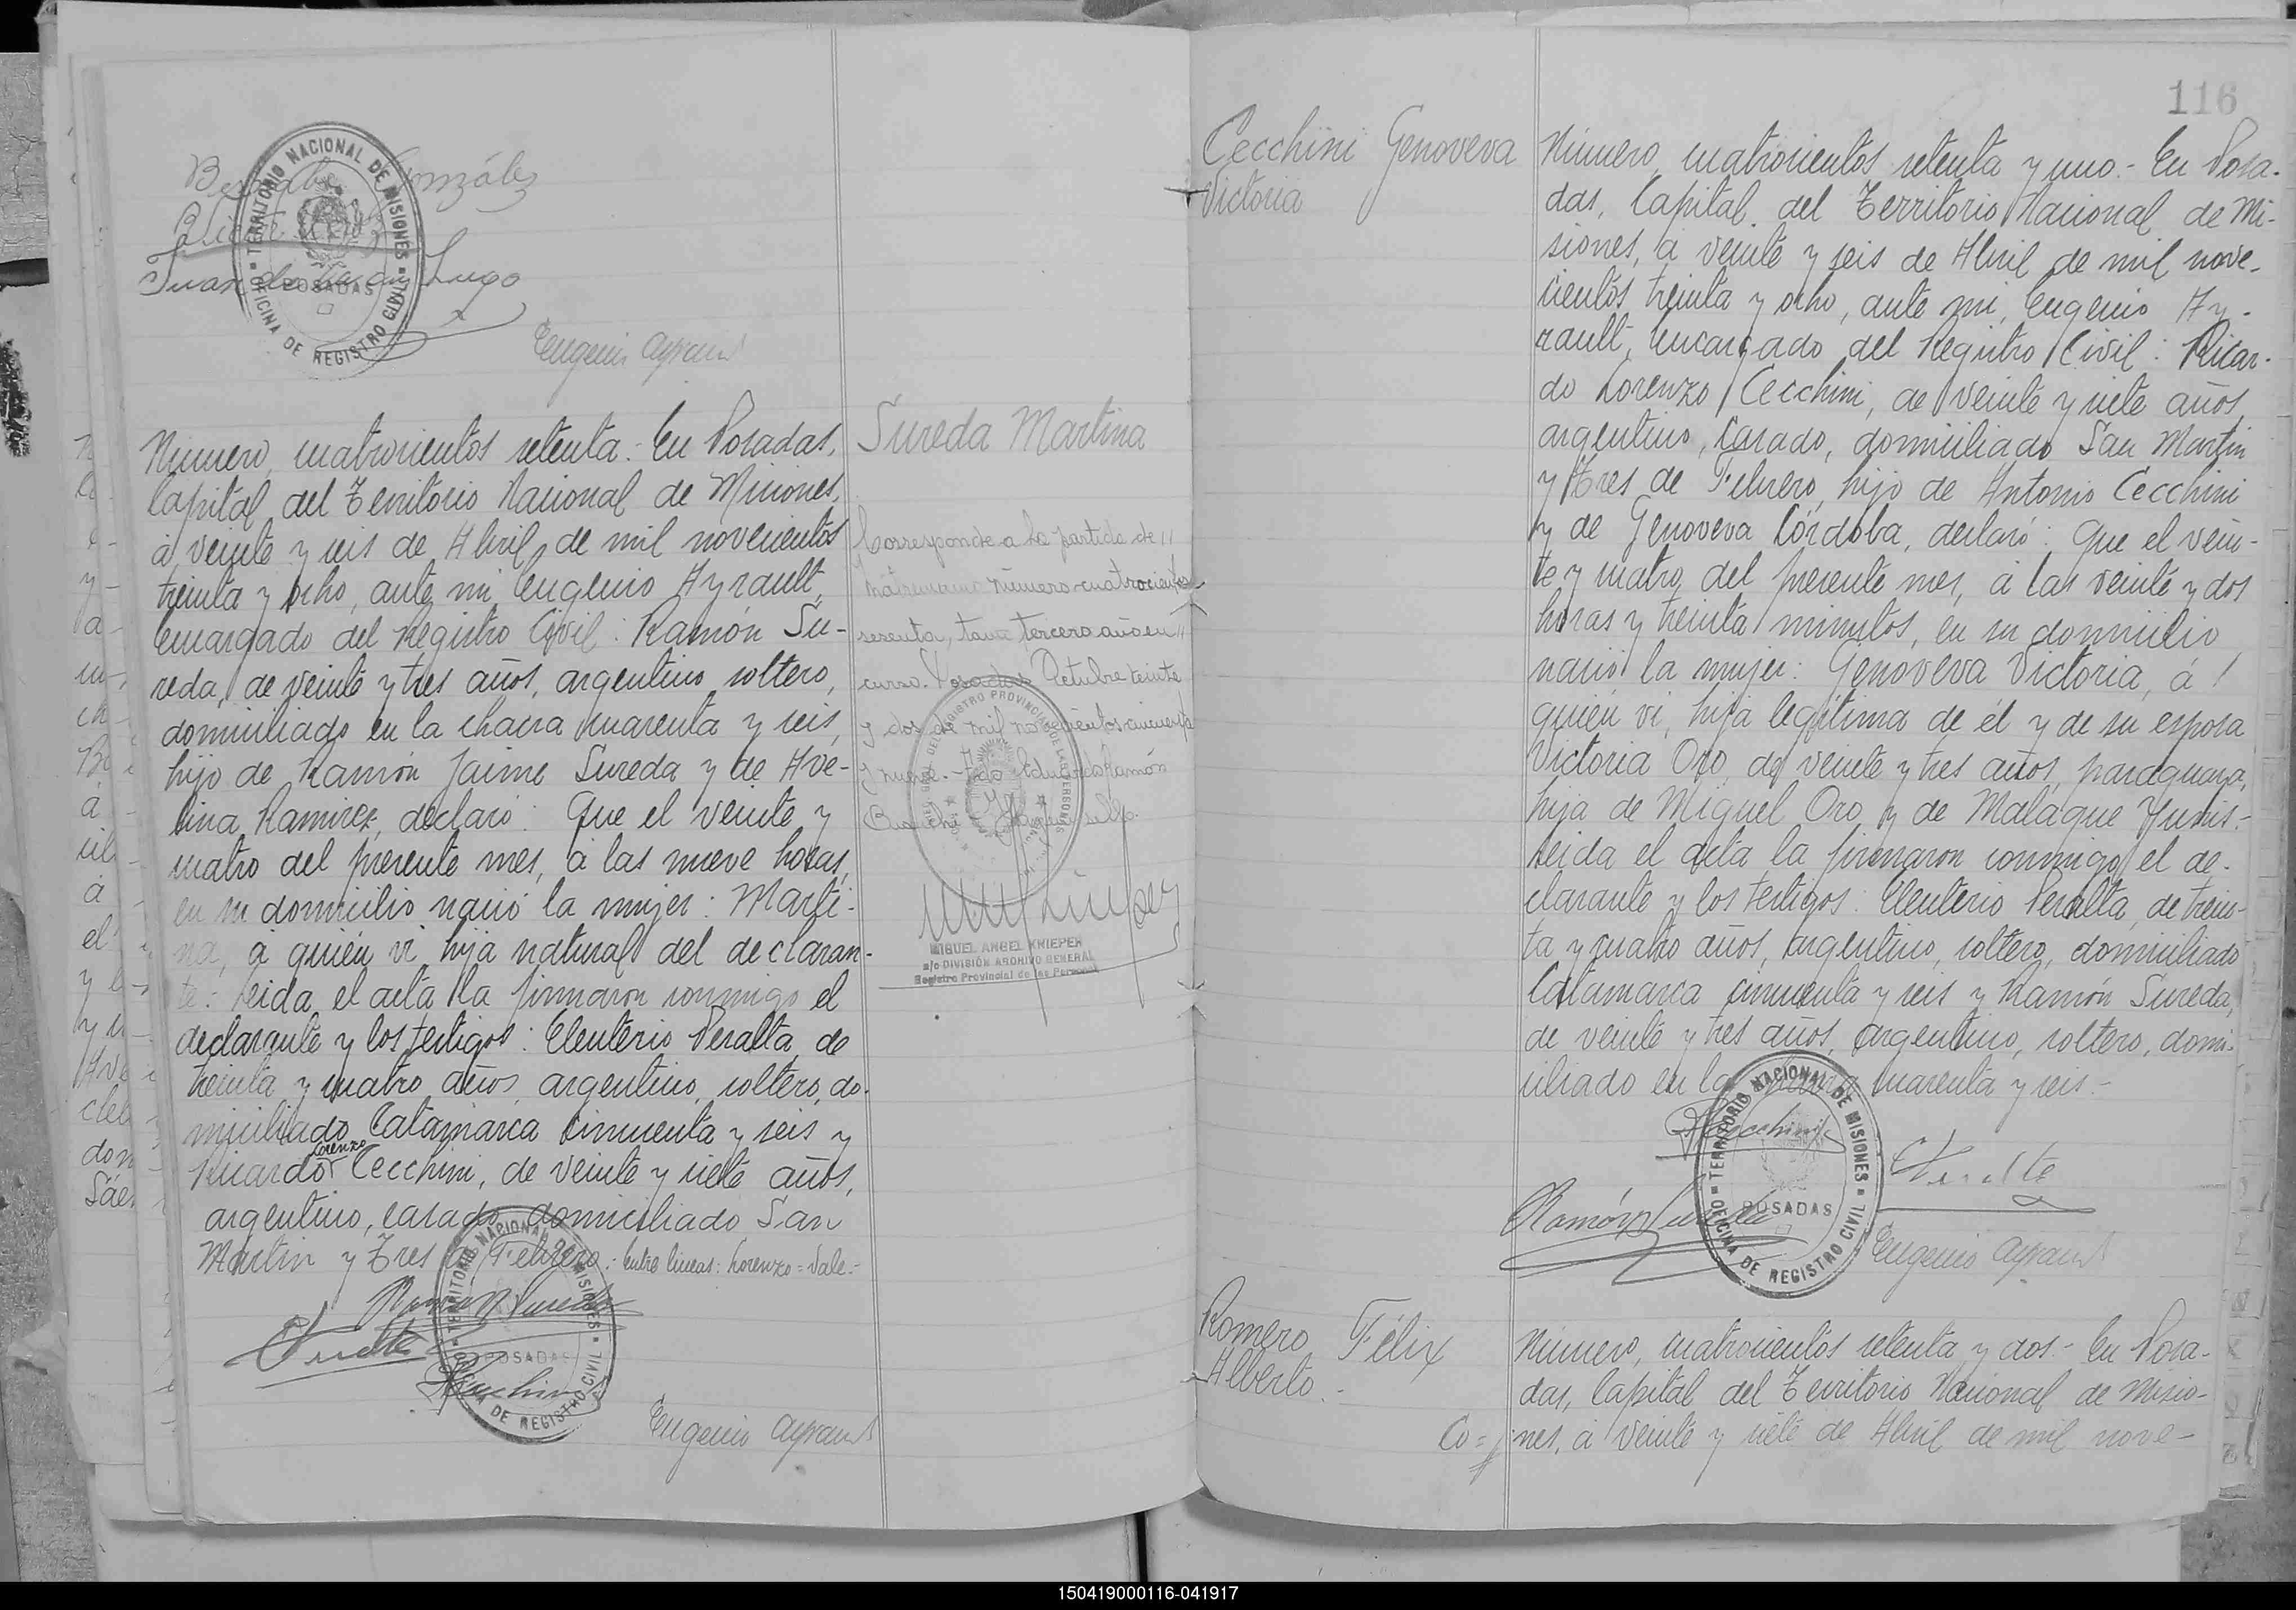 Bernabe González
Juan de Lugo
TERRITORIO NACIONAL DE MISIONES
POSADAS
OFICINA DE REGISTRO CIVIL
Eugenio Ayrault
Número, cuatrocientos setenta.- En Posadas,
Capital del Territorio Nacional de Misiones,
á veinte y seis de Abril, de mil novecientos
treinta y ocho, ante mi Eugenio Ayrault,
Encargado del Registro Civil: Ramón Su-
reda, de veinte y tres años, argentino soltero,
domiciliado en la chacra cuarenta y seis,
hijo de Ramón Jaime Sureda y de Ave-
lina Ramirez, declaró: Que el veinte y
cuatro del presente mes, á las nueve horas,
en su domicilio nació la mujer: Marti-
na, á quién vi hija natural del declaran-
te: Leida el acta la firmaron conmigo el
declarante y los testigos: Eleuterio Peralta, de
treinta y cuatro años, argentino, soltero, do-
miciliado Catamarca cincuenta y seis y
Lorenzo
Ricardo Cecchini, de veinte y siete años,
argentino, casado, domiciliado San
Martin y Tres de Febrero.: Entre lineas: Lorenzo = Vale.-
Ramón Sureda
TERRITORIO NACIONAL DE MISIONES
POSADAS
OFICINA DE REGISTRO CIVIL
Eugenio Ayrault
Sureda Martina
Corresponde a la partida de
matrimonio número cuatrocientos
sesenta, tomo tercero año en
curso. Posadas Octubre veinte
y dos de mil novecientos cincuenta
y nueve.- Fdo Eduardo Ramón
MIGUEL ANGEL KNIEPER
a/c DIVISIÓN ARCHIVO GENERAL
Registro Provincial de las Personas
116
Cecchini Genoveva
Victoria
Número, cuatrocientos setenta y uno.- En Posa-
das, Capital del Territorio Nacional de Mi-
siones, á veinte y seis de Abril de mil nove-
cientos treinta y ocho, ante mi, Eugenio Ay-
rault, Encargado del Registro Civil: Ricar-
do Lorenzo Cecchini, de veinte y siete años,
argentino, casado, domiciliado San Martin
y Tres de Febrero, hijo de Antonio Cecchini
y de Genoveva Córdoba, declaró: Que el vein-
te y cuatro del presente mes, á las veinte y dos
horas y treinta minutos, en su domicilio
nació la mujer: Genoveva Victoria, á
quién vi, hija legítima de él y de su esposa
Victoria Oro, de veinte y tres años, paraguaya,
hija de Miguel Oro y de Malaque Yunis.-
Leida el acta la firmaron conmigo el de-
clarante y los testigos: Eleuterio Peralta, de trein-
ta y cuatro años, argentino, soltero, domiciliado
Catamarca cincuenta y seis y Ramón Sureda,
de veinte y tres años, argentino, soltero, domi-
ciliado en la chacra cuarenta y seis.-
Ramón Sureda
TERRITORIO NACIONAL DE MISIONES
POSADAS
OFICINA DE REGISTRO CIVIL
Eugenio Ayrault
Romero Félix
Alberto.-
Número, cuatrocientos setenta y dos.- En Posa-
das, Capital del Territorio Nacional de Misio-
nes, á veinte y siete de Abril de mil nove-
150419000116-041917